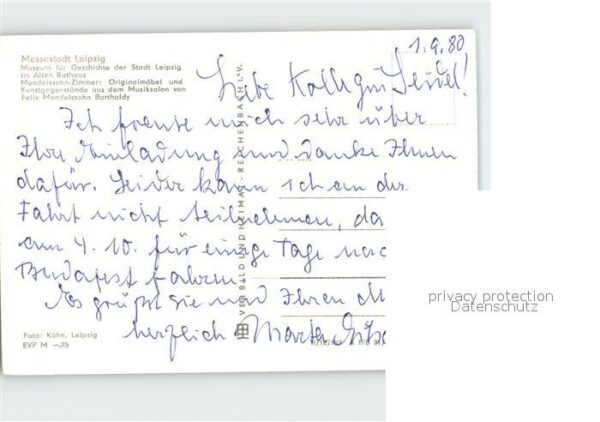 Messestadt Leipzig
Museum für Geschichte der Stadt Leipzig
im Alten Rathaus
Mendelssohn-Zimmer: Originalmöbel und
Kunstgegenstände aus dem Musiksalon von
Felix Mendelssohn Bartholdy
1.9.80
Liebe Kollegin Seidel!
Ich freute mich sehr über
Ihre Einladung und danke Ihnen
dafür. Leider kann ich an der
Fahrt nicht teilnehmen, da
am 4. 10. für einige Tage nac
Budapest fahren.
Es grüßt Sie und Ihren
herzlich
VEB BILD UND HEIMAT · REICHENBACH i. V.
Foto: Kühn, Leipzig
EVP M —.25
privacy protection
Datenschutz